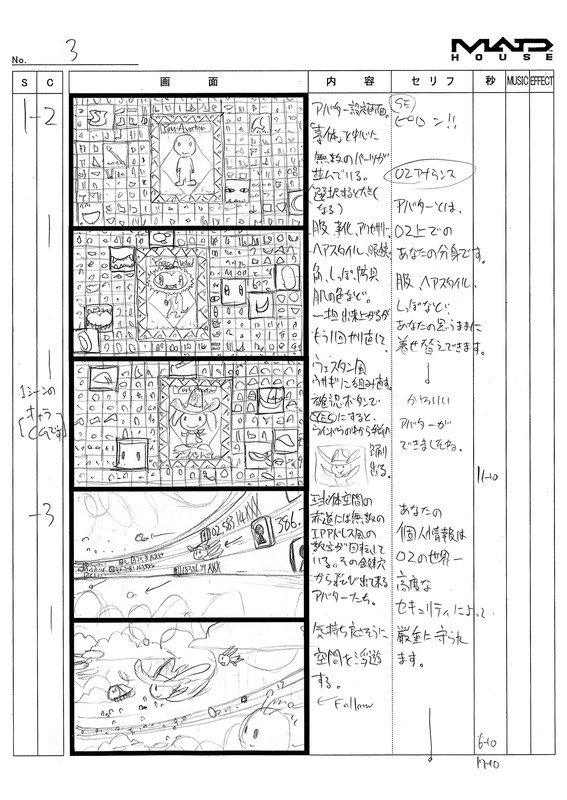 No. 3
MAD HOUSE
S
C
画面
内容
セリフ
秒
MUSIC
EFFECT
1-2
Your Avatar
Your Avatar
Your Avatar
アバター設定画面。
「素体」を中心に
無数のパーツが
並んでいる。
(選択すると大きく
なる)
服、靴、アクセサリー、
ヘアスタイル、眼鏡、
角、しっぽ、防具
肌の色など。
一担出来上がるが
もう1回やり直して、
ウェスタン風
ウサギに組み直す。
確認ボタンで
(YES)にすると、
踊り
出る。
SE
ピロン!!
OZアナウンス
アバターとは、
OZ上での
あなたの分身です。
服、ヘアスタイル、
しっぽなど
あなたの思うままに
着せ替えできます。
かわいい
アバターが
できましたね。
11-10
1シーンの
キャラ
CGです
-3
025814XXX
386.7
球体空間の
赤道には無数の
IPアドレス風の
数字が回転して
いる。その鍵穴
から飛び出て来る
アバターたち。
気持ち良さそうに
空間を浮遊
する。
← Follow
あなたの
個人情報は
OZの世界一
高度な
セキュリティによって
厳重に守られ
ます。
6-10
17-10